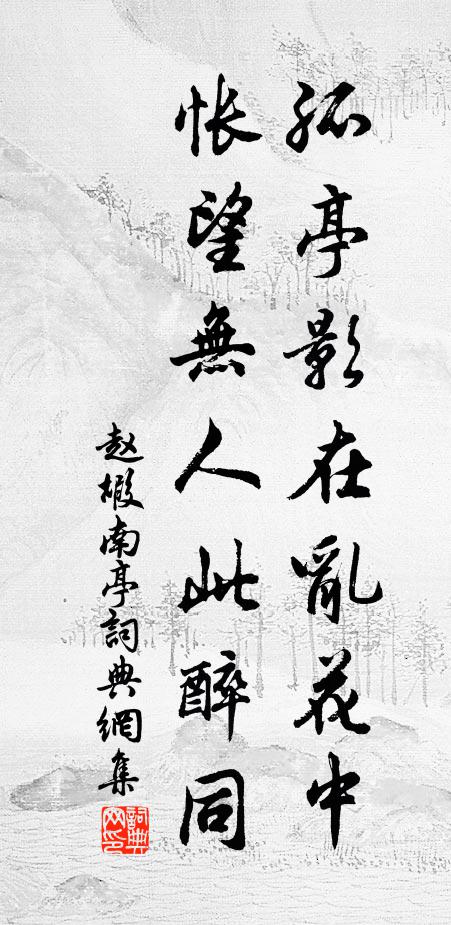 孤亭影在亂花中
悵望無人此醉同
赵嘏南亭詞典網集
詞典
网印